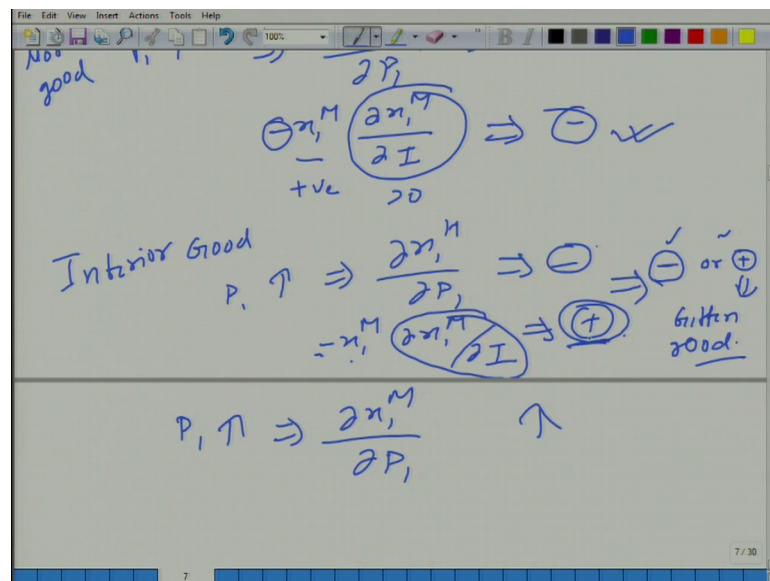 File Edit View Insert Actions Tools Help
100%
B I
good P₁ ↑ ⇒ ∂P₁
⊖x₁ᴹ (∂x₁ᴹ/∂I) ⇒ ⊖ ✓
+ve >0
Inferior Good
P₁ ↑ ⇒ ∂x₁ᴴ/∂P₁ ⇒ ⊖ ⇒ ⊖ or ⊕
-x₁ᴹ (∂x₁ᴹ/∂I) ⇒ ⊕ Giffen
good.
P₁ ↑ ⇒ ∂x₁ᴹ/∂P₁ ↑
7 / 30
7